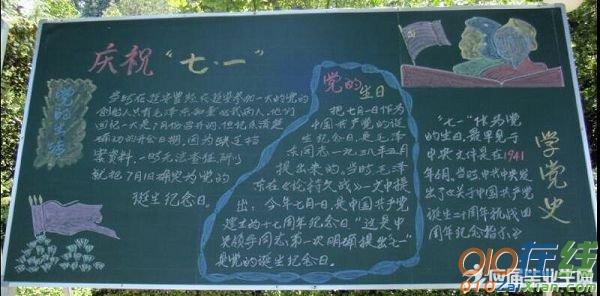 庆祝“七·一”
党的生活
当时在延安曾经庆祝参加一大的党的
创始人只有毛泽东和董必武两人,他们
回忆一大是7月份召开的,但记不清楚
确切的开会日期,因为缺乏档
案资料,一时无法查证,所以
就把7月1日确定为党的
诞生纪念日。
党的生日
把七月一日作为
中国共产党的诞
生纪念日,是毛泽
东同志一九三八年五月
提出来的,当时毛泽
东在《论持久战》一文中提
出:今年七月一日,是中国共产党
建立的十七周年纪念日”这是中
央领导同志第一次明确提出七一
是党的诞生纪念日。
“七一”作为党
的生日,最早见于
中央文件是在1941
年6月,当时中共中央发
出了《关于中国共产党
诞生二十周年抗战四
周年纪念指示》
学党史
910在线